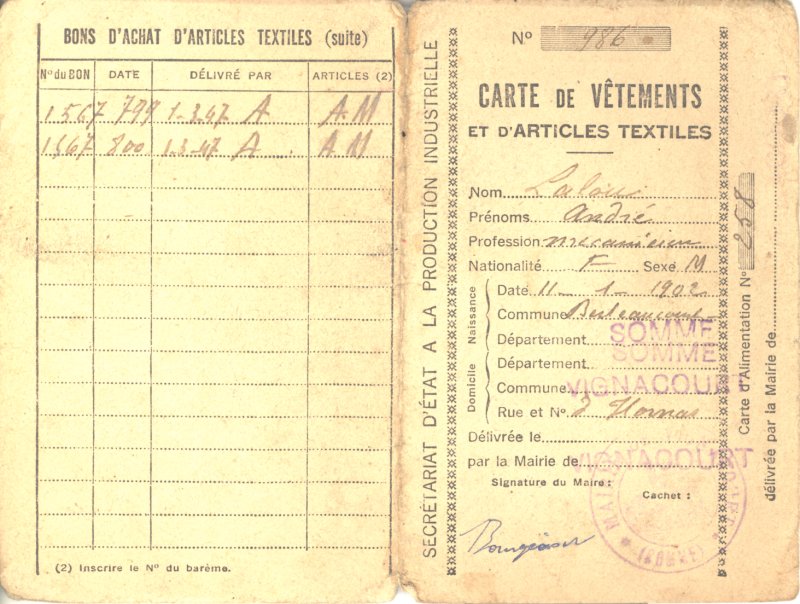 BONS D'ACHAT D'ARTICLES TEXTILES (suite)
N° du BON DATE DÉLIVRÉ PAR ARTICLES (2)
1567 799 1-3-47 A A M
1567 800 1-3-47 A A M
(2) Inscrire le N° du barème.
SECRÉTARIAT D'ÉTAT A LA PRODUCTION INDUSTRIELLE
N° 986
CARTE DE VÊTEMENTS
ET D'ARTICLES TEXTILES
Nom
Prénoms André
Profession mécanicien
Nationalité F Sexe M
Naissance
Date 11-1-1902
Commune Berteaucourt
Département SOMME
Domicile
Département SOMME
Commune VIGNACOURT
Rue et N° d'Hornas
Délivrée le
par la Mairie de VIGNACOURT
Signature du Maire :
Cachet :
(SOMME)
Carte d'Alimentation N° 258
délivrée par la Mairie de